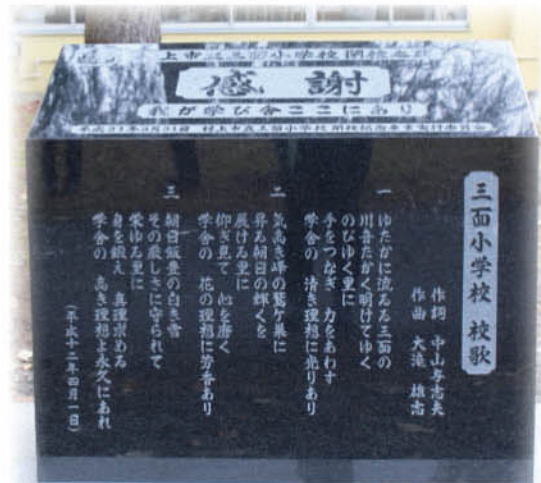 村上市立三面小学校閉校
感謝
我が学び舎ここにあり
平成31年3月31日 村上市立三面小学校 閉校記念事業実行委員会
三面小学校 校歌
作詞 中山与志夫
作曲 大滝 雄志
一
ゆたかに流るる三面の
川音たかく明けてゆく
のびゆく里に
手をつなぎ 力をあわす
学舎の 清き理想に光りあり
二
気高き峰の鷲ケ巣に
昇る朝日の輝くを
展ける里に
仰ぎ見て 心を磨く
学舎の 花の理想に芳香あり
三
朝日飯豊の白き雪
その厳しさに守られて
栄ゆる里に
身を鍛え 真理求める
学舎の 高き理想よ永久にあれ
(平成十二年四月一日)